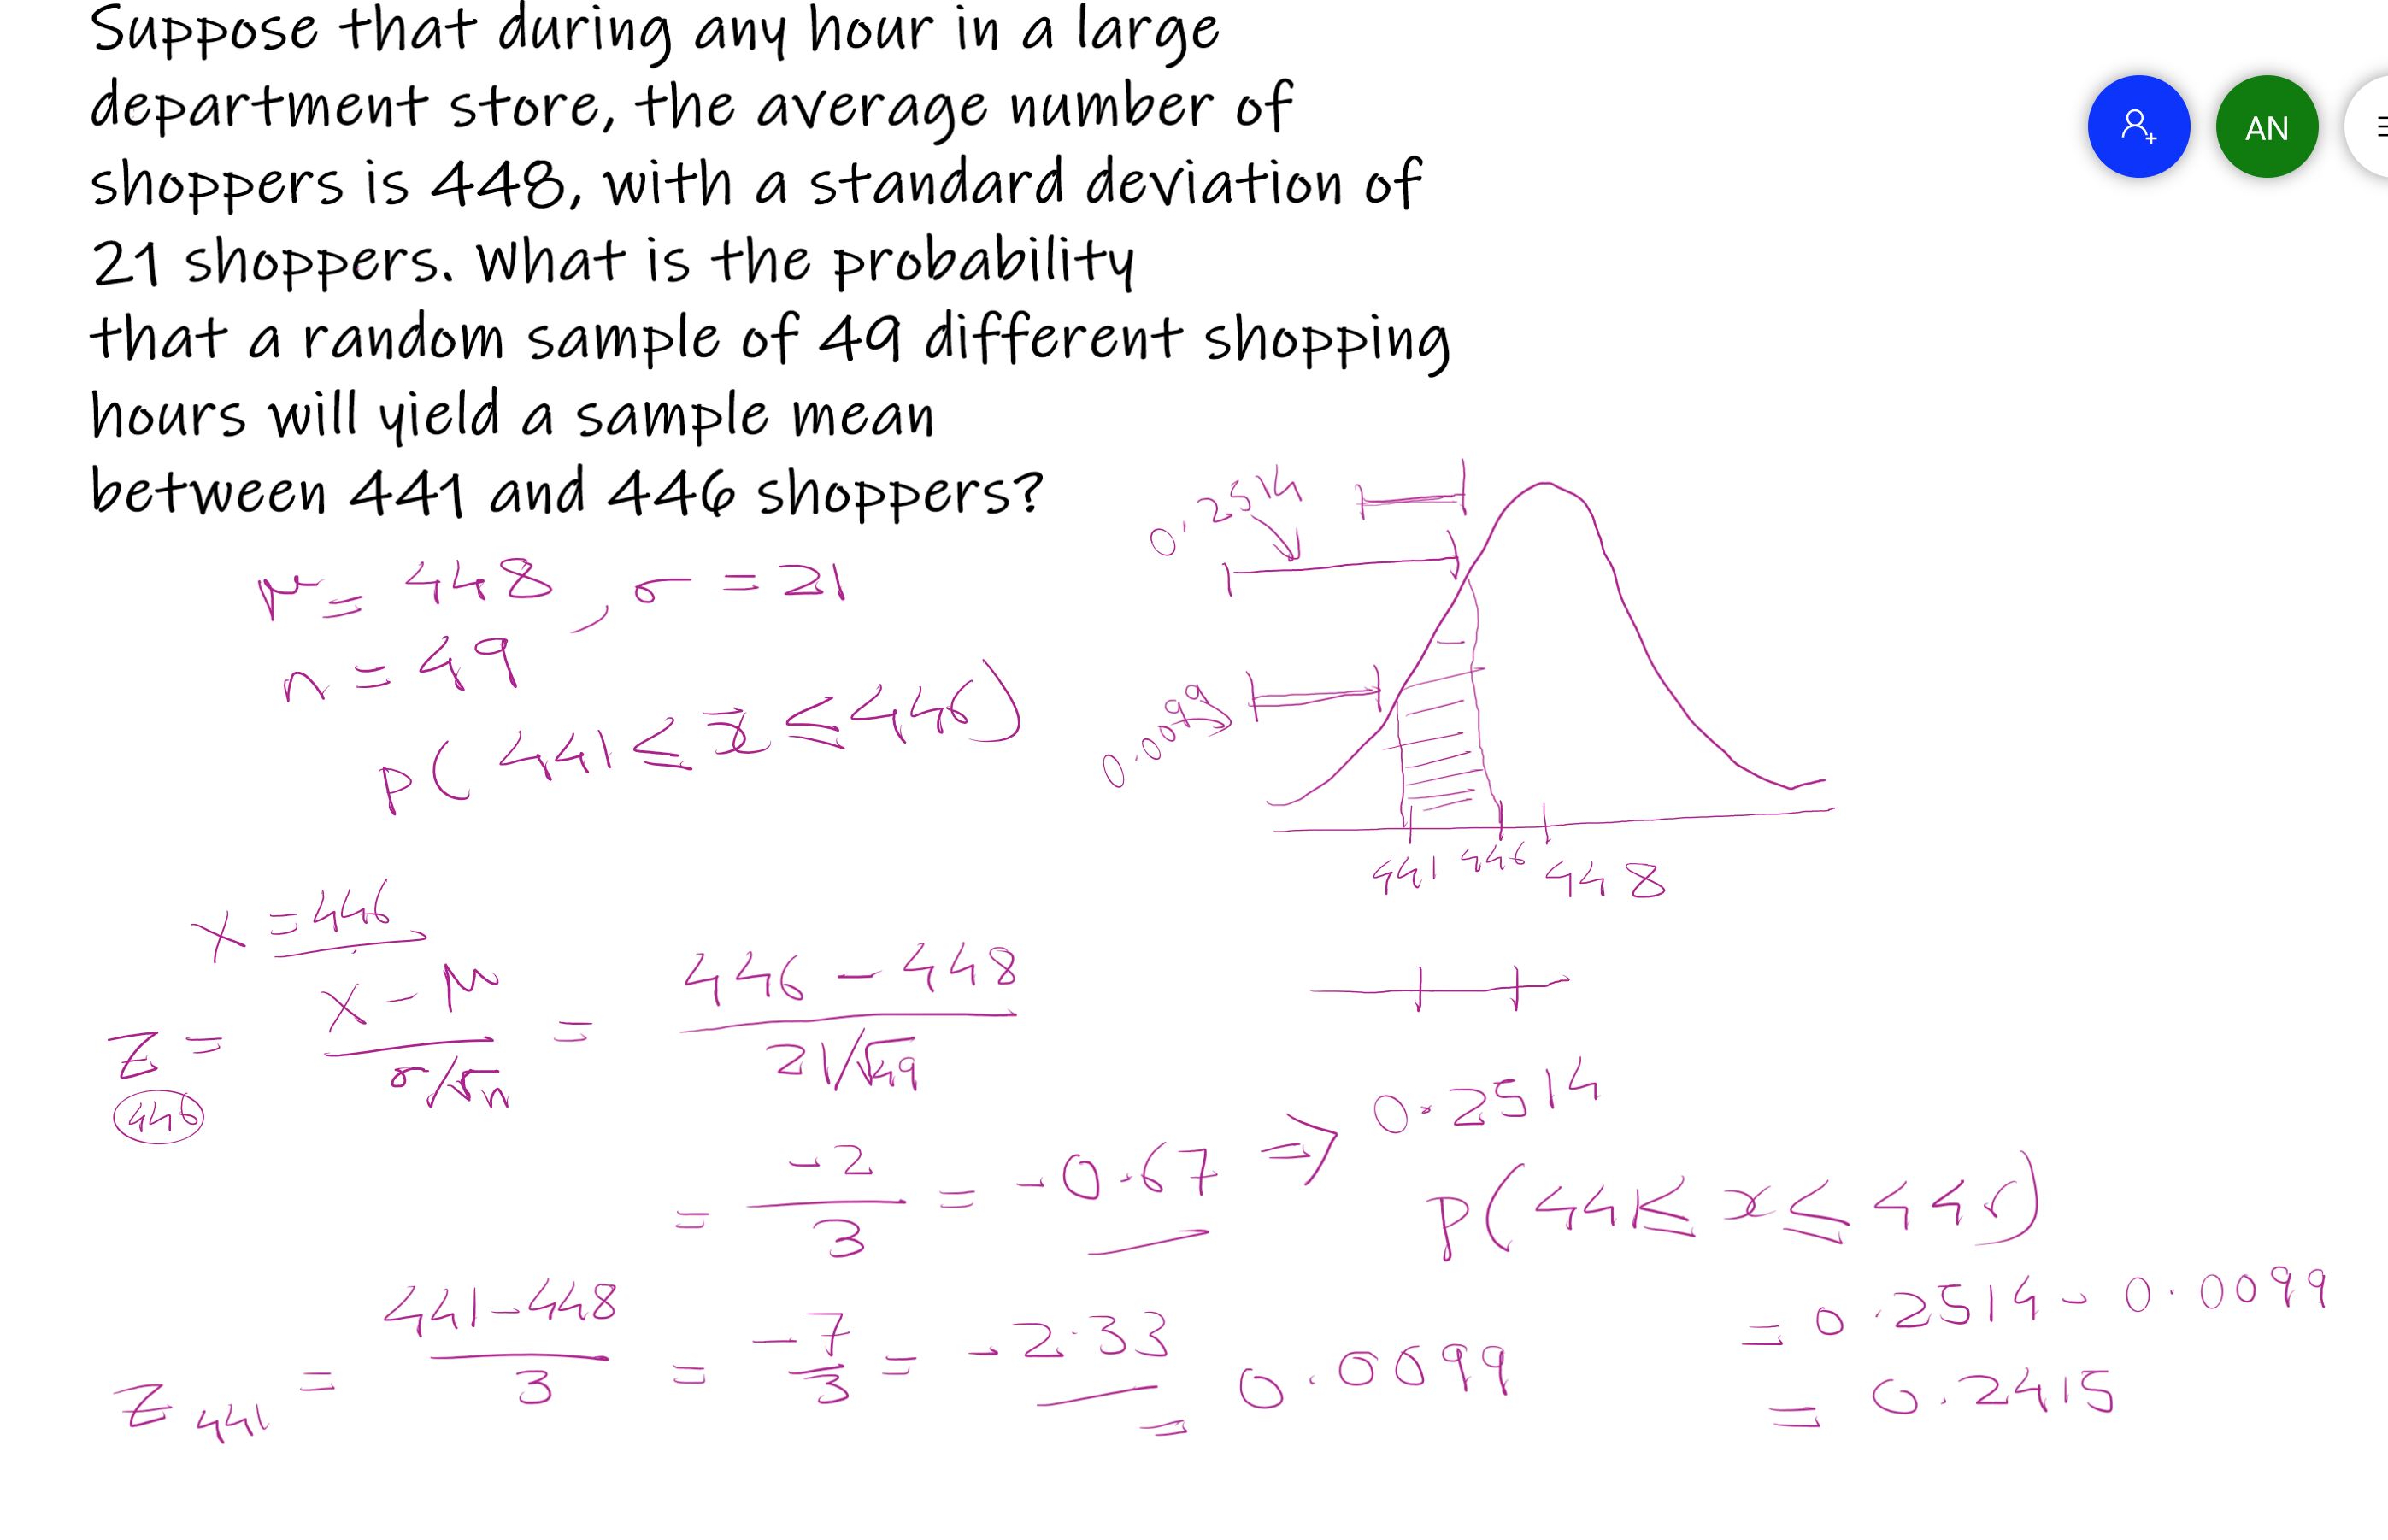 Suppose that during any hour in a large
department store, the average number of
shoppers is 448, with a standard deviation of
21 shoppers. What is the probability
that a random sample of 49 different shopping
hours will yield a sample mean
between 441 and 446 shoppers?
AN
μ = 448, σ = 21
n = 49
P(441 ≤ x̄ ≤ 446)
0.2514
0.0099
441 446 448
x = 446
Z 446 = x - μ / σ/√n = 446 - 448 / 21/√49
= -2 / 3 = -0.67 ⇒ 0.2514
Z 441 = 441 - 448 / 3 = -7 / 3 = -2.33 = 0.0099
P(441 ≤ x ≤ 446)
= 0.2514 - 0.0099
= 0.2415